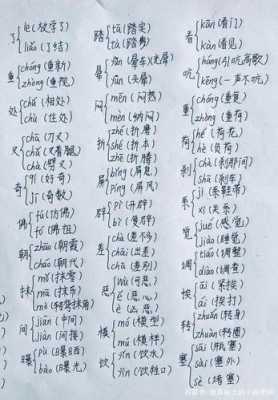 了 le(放学了)
liǎo(了结)
重 chóng(重新)
zhòng(重视)
处 chǔ(相处)
chù(住处)
叉 chā(刀叉)
chǎ(叉着腿)
chà(劈叉)
奇 qí(好奇)
jī(奇数)
佛 fú(仿佛)
fó(佛祖)
朝 zhāo(朝霞)
cháo(朝代)
抹 mǒ(抹药)
mā(抹布)
mò(转弯抹角)
间 jiān(中间)
jiàn(间接)
曝 pù(曝晒)
bào(曝光)
踏 tā(踏实)
tà(踏步)
晕 yùn(晕车)(光晕)
yūn(头晕)
闷 mēn(闷热)
mèn
折 zhé(折磨)
shé(折本)
zhē(折腾)
屏 bǐng(屏息)
píng(屏风)
辟 pì(开辟)
bì(复辟)
差 chà(差不多)
chāi(出差)
chā(差别)
恶 wù(可恶)
ě(恶心)
è
模 mó(模型)
mú(模样)
饮 yǐn(饮水)
yìn(饮牲口)
看 kān(看门)
kàn(看见)
吭 háng(引吭高歌)
kēng(一声不吭)
重 chóng(重复)
zhòng
荷 hé(荷花)
hè(负荷)
刹 chà(刹那间)
shā(刹车)
系 jì(系鞋带)
xì(关系)
觉 jué(感觉)
jiào(睡觉)
调 tiáo(调整)
diào(调查)
挨 āi(紧挨)
ái(挨打)
转 zhuǎn(转身)
zhuàn(转圈)
塞 sāi(瓶塞)
sài(塞外)
sè(堵塞)